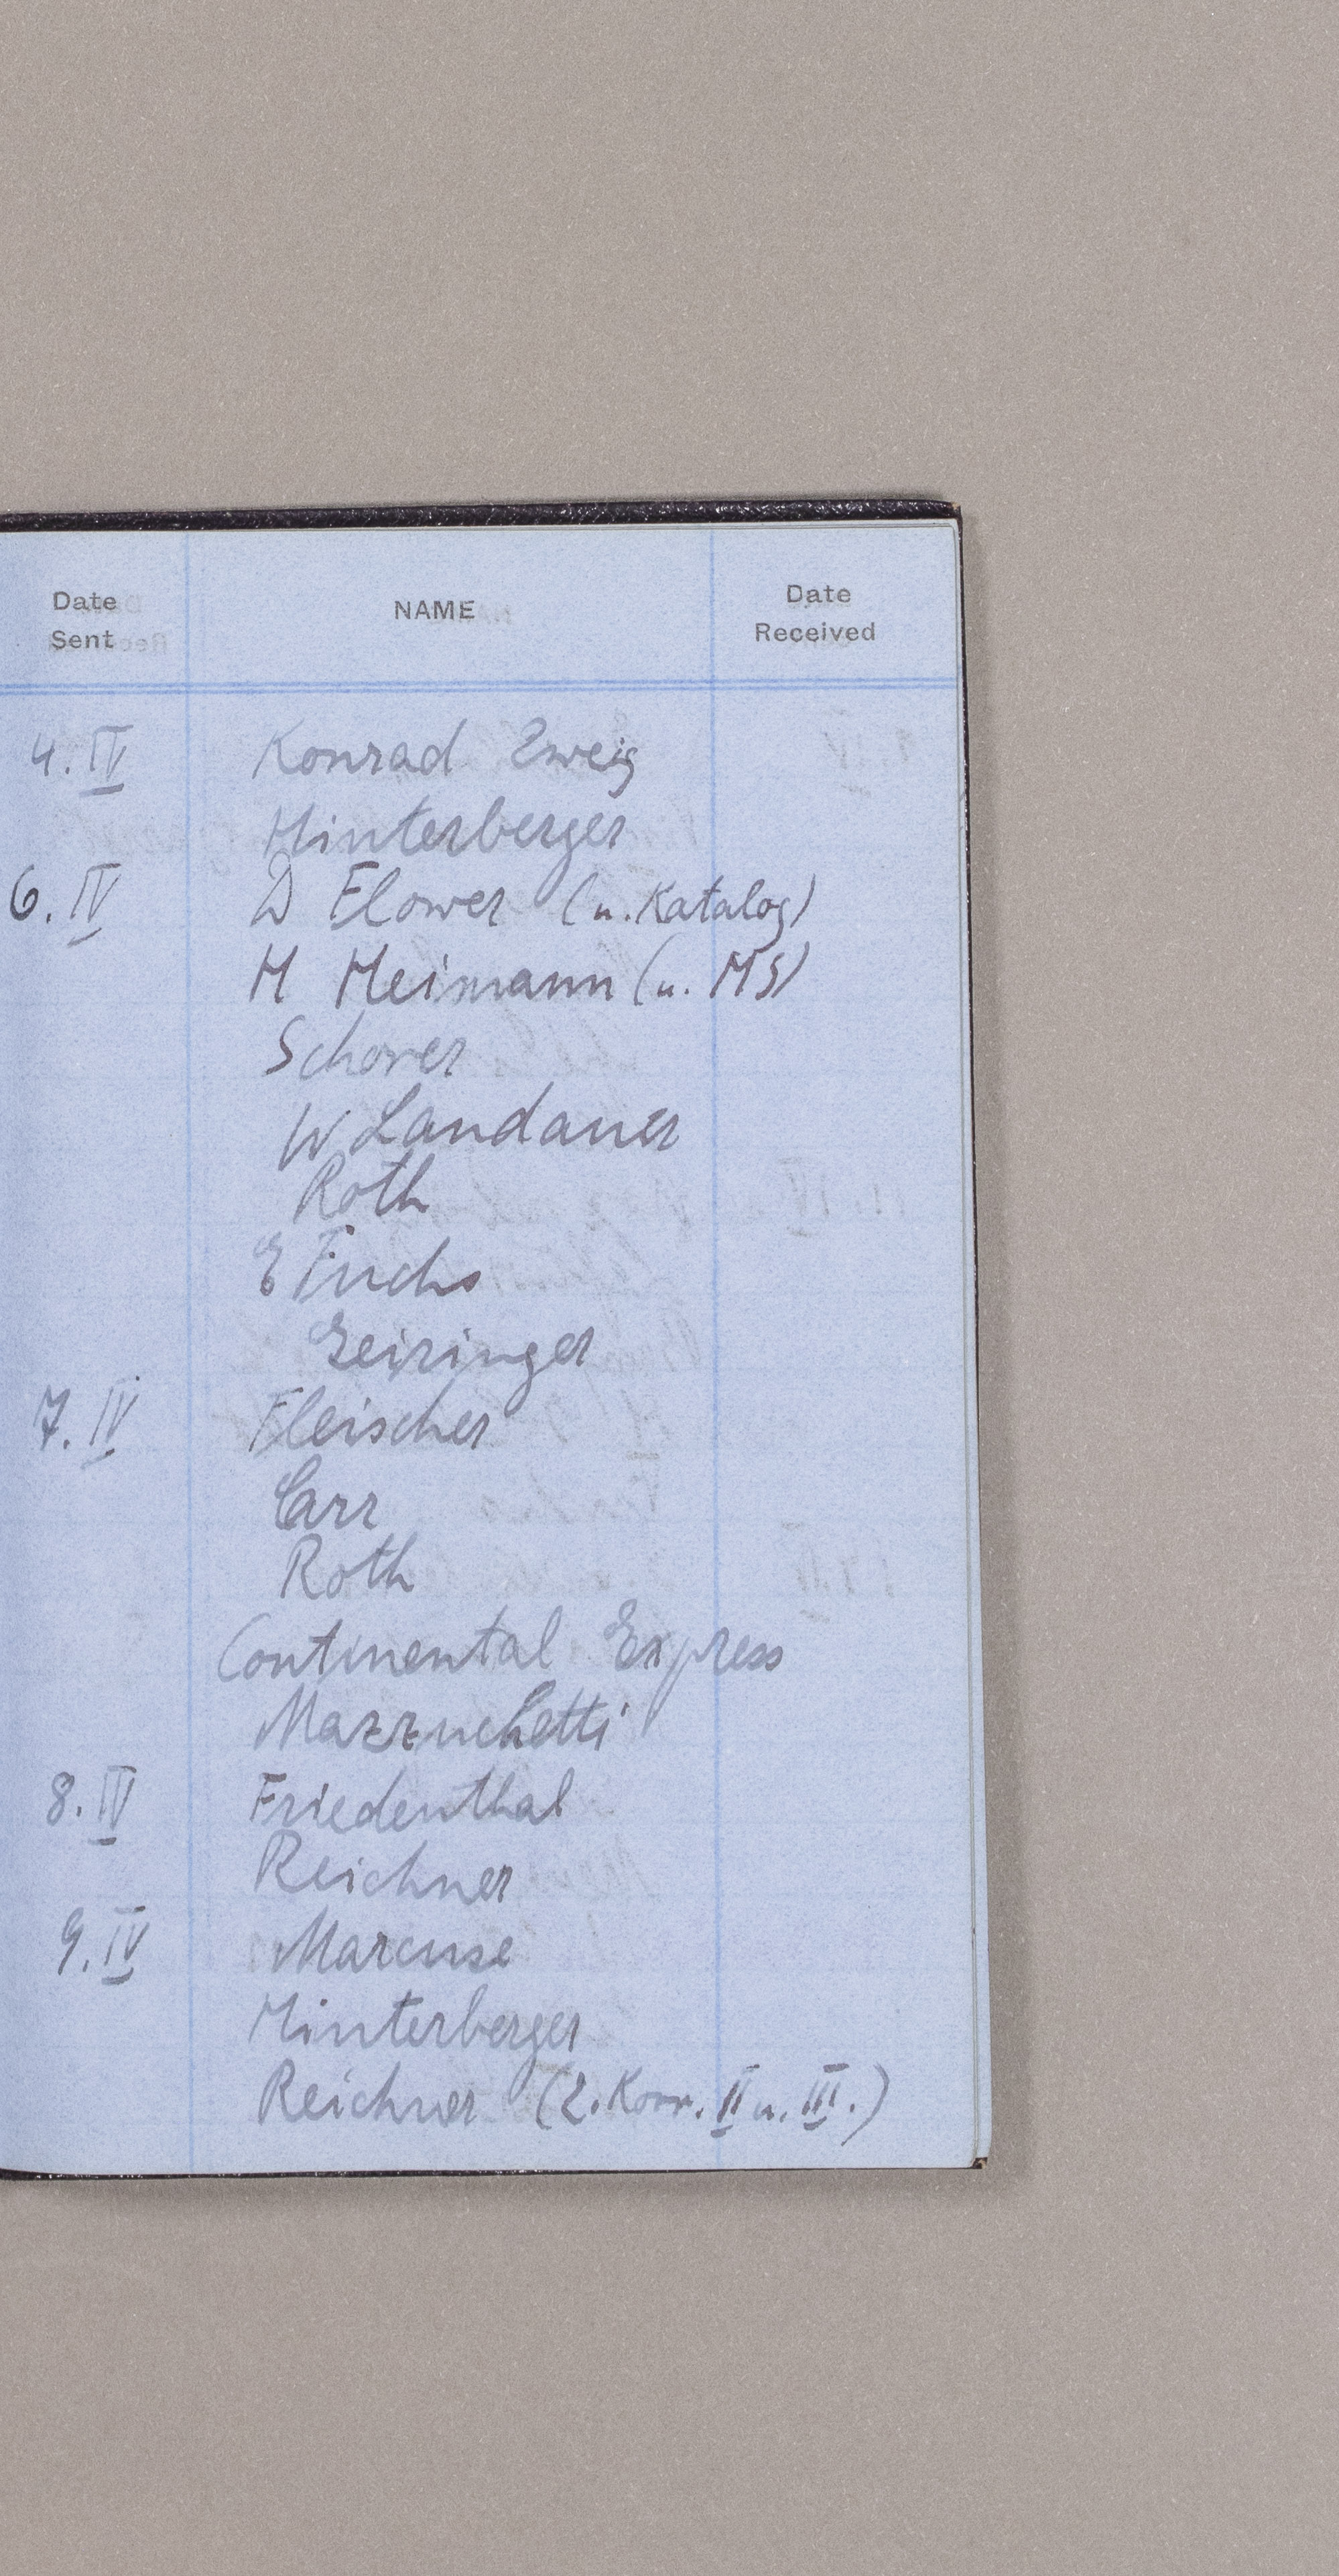 Date Sent NAME Date Received
4. IV Konrad Zweig
Hinterberger
6. IV D Flower (u. Katalog)
H Heimann (u. MS)
Schorer
W Landauer
Roth
E Fuchs
Geiringer
7. IV Fleischer
Carr
Roth
Continental Express
Mazzucchetti
8. IV Friedenthal
Reichner
9. IV Marcuse
Hinterberger
Reichner (2. Korr. II u. III.)